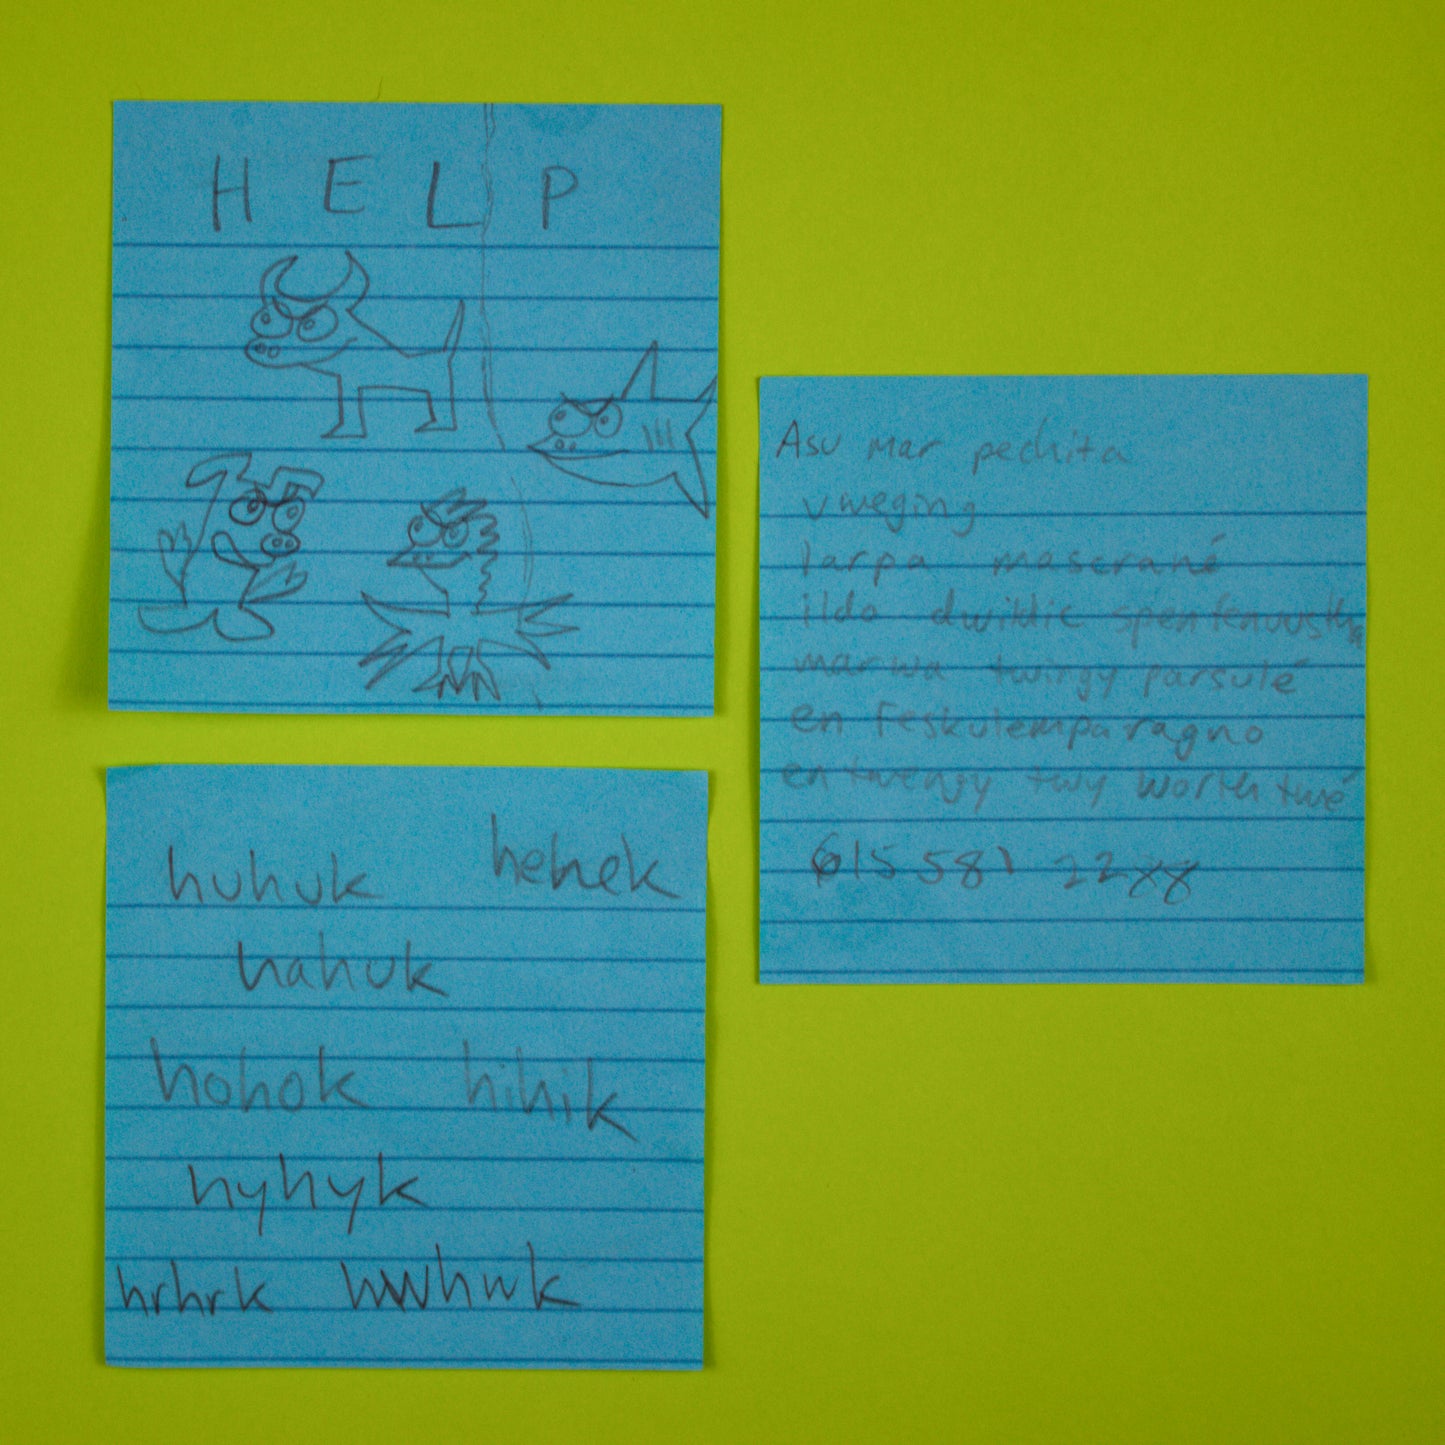 H E L P
huhuk hehek
hahuk
hohok hihik
hyhyk
hrhrk hwhwk
Asu mar pechita
vweging
larpa mascrané
ildo
marwa twingy parsulé
en Feskulemparagno
en twengy twy worth twé
615 581 22